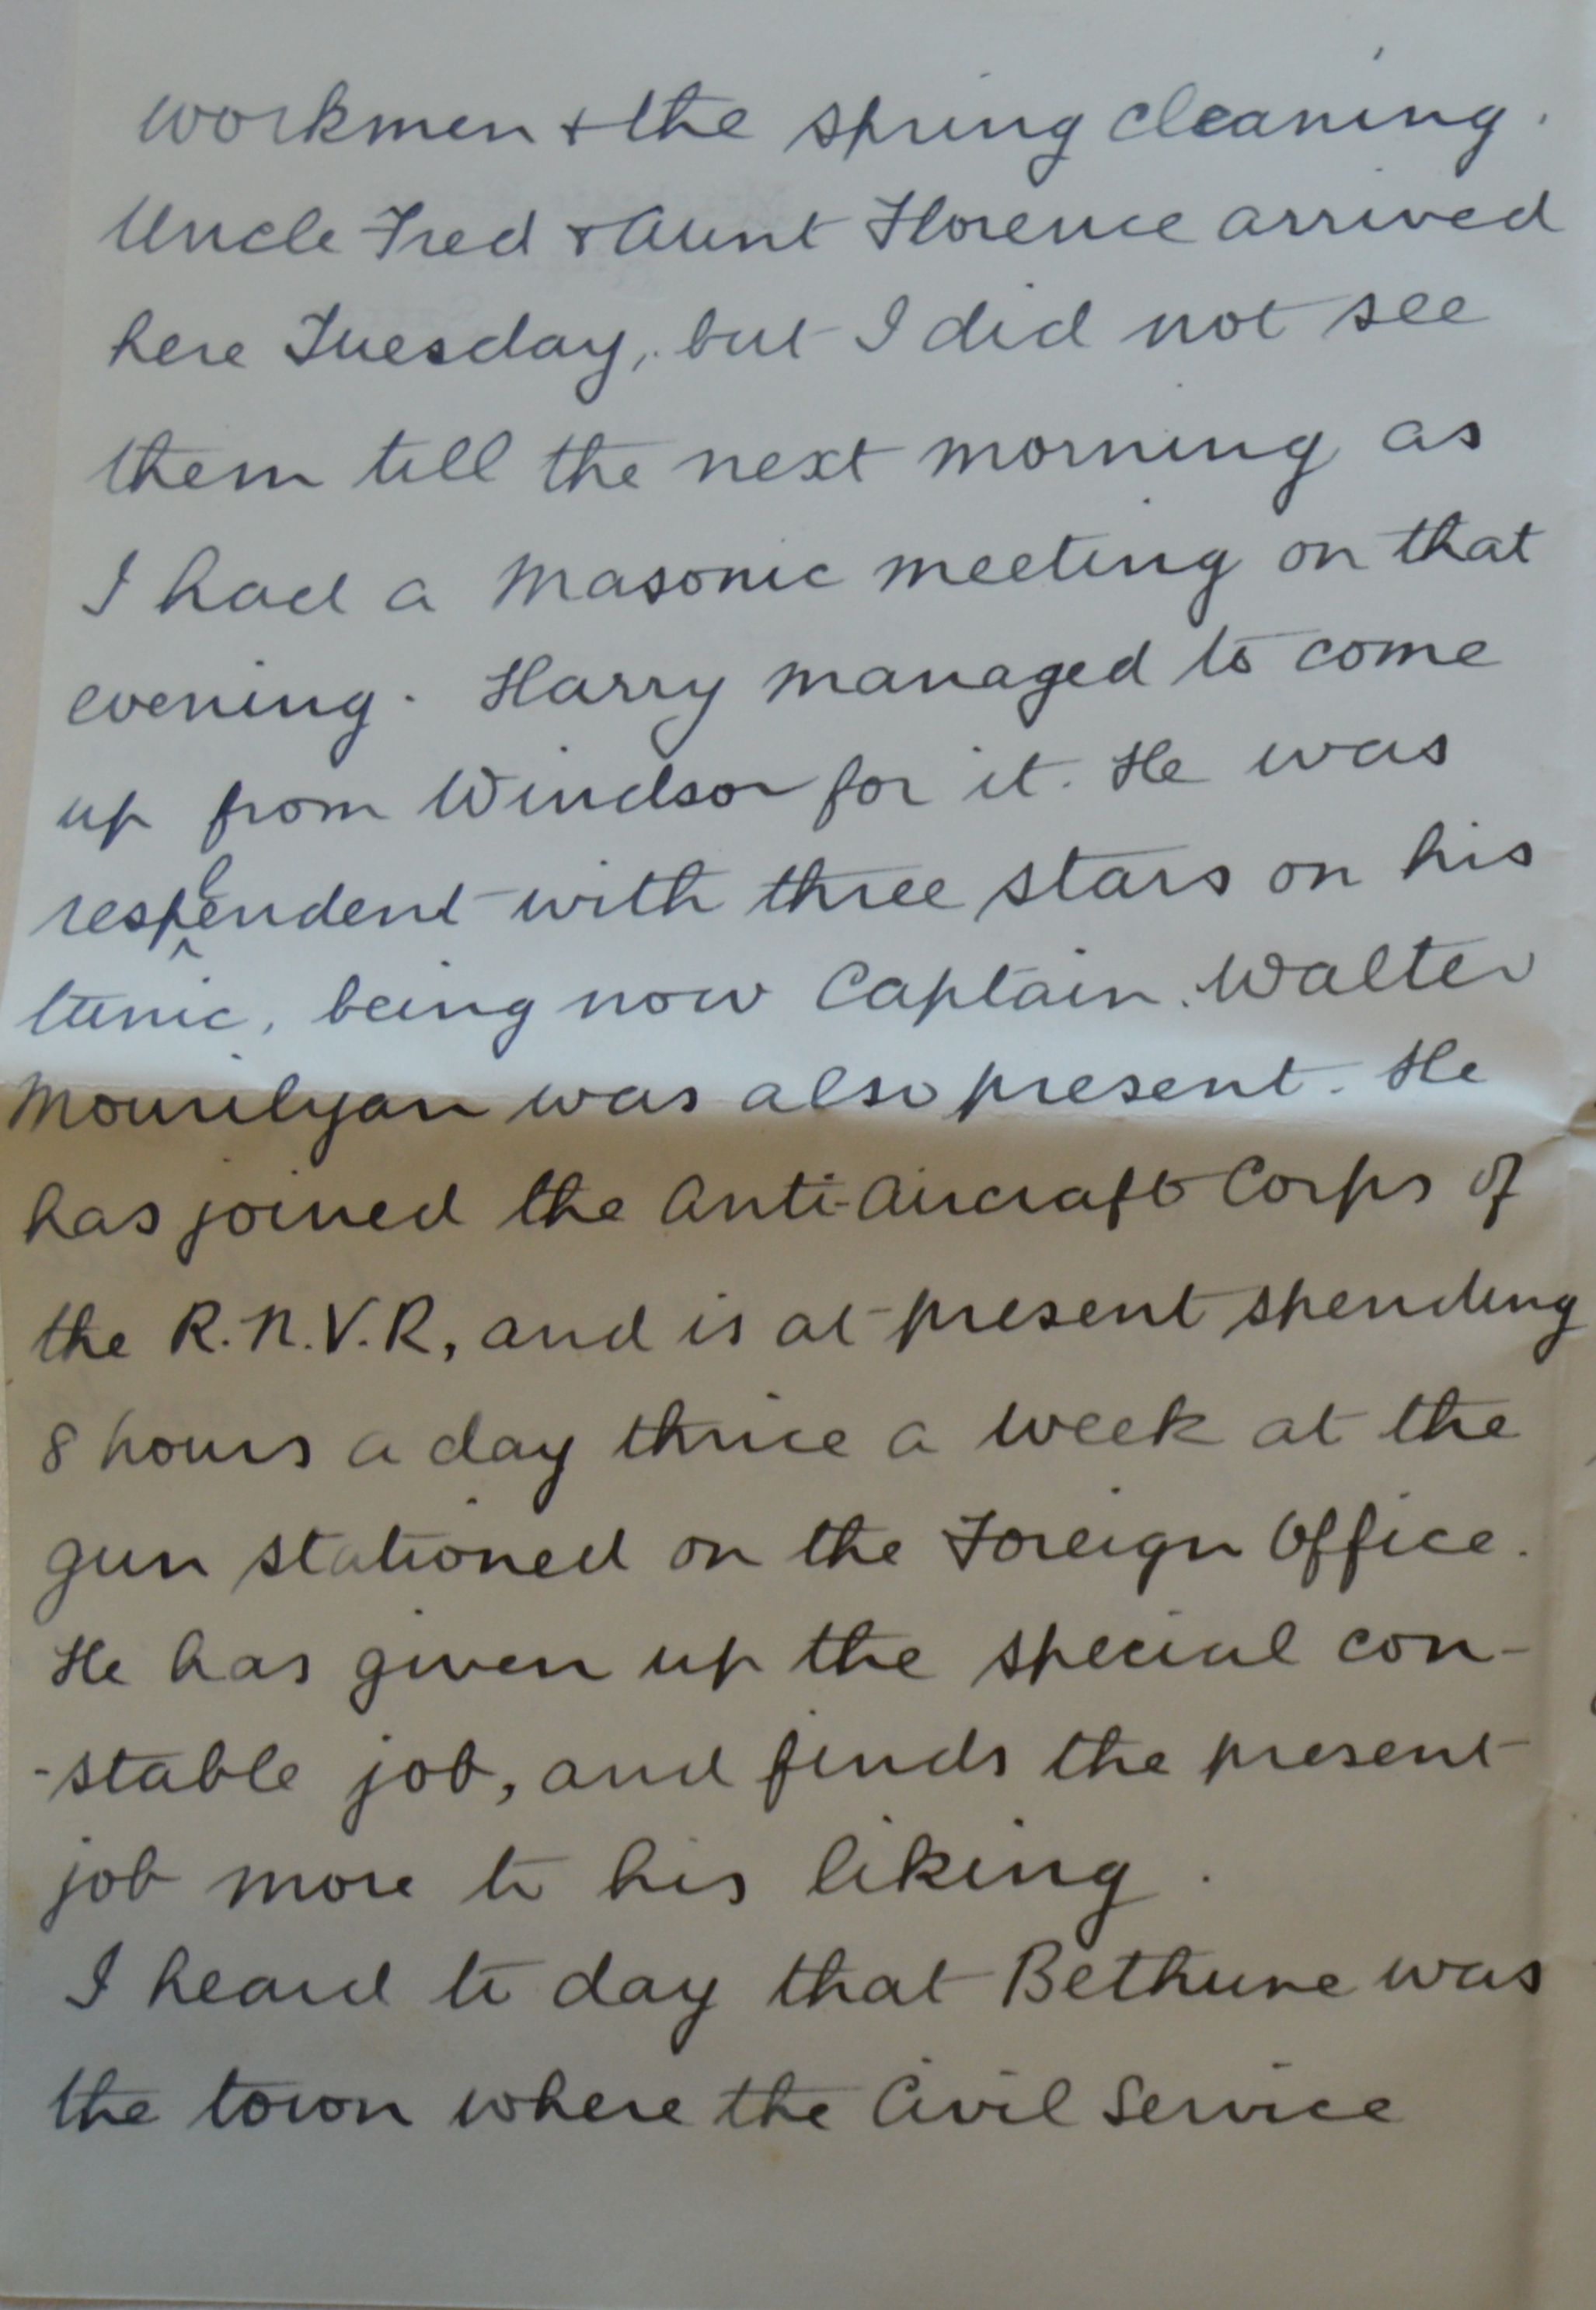 workmen & the spring cleaning.
Uncle Fred & Aunt Florence arrived
here Tuesday, but I did not see
them till the next morning as
I had a Masonic meeting on that
evening. Harry managed to come
up from Windsor for it. He was
resplendent with three stars on his
tunic, being now Captain. Walter
Mourilyan was also present. He
has joined the Anti-Aircraft Corps of
the R.N.V.R, and is at present spending
8 hours a day thrice a week at the
gun stationed on the Foreign Office.
He has given up the special con-
-stable job, and finds the present
job more to his liking.
I heard to day that Bethune was
the town where the Civil Service